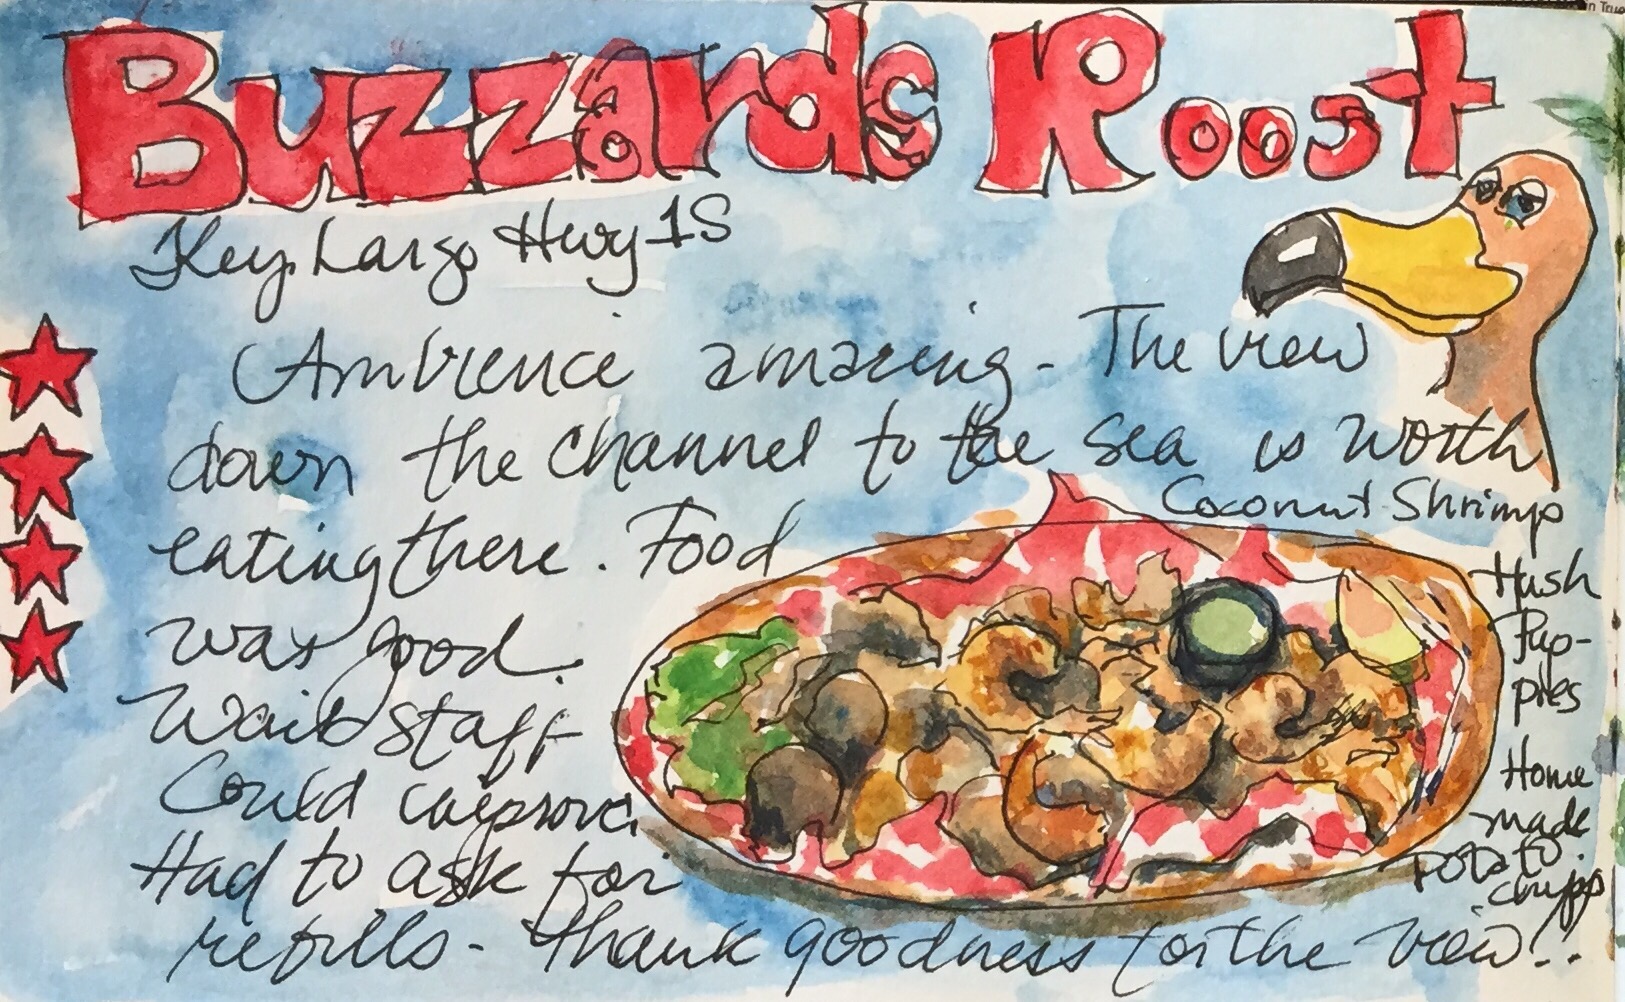 Buzzards Roost
Key Largo Hwy 1S
Ambience amazing - The view
down the channel to the sea is worth
eating there. Food
was good.
Wait staff
Could improve.
Had to ask for
refills - thank goodness for the view!!
Coconut Shrimp
Hush
Pup-
pies
Home
made
Potato
chips